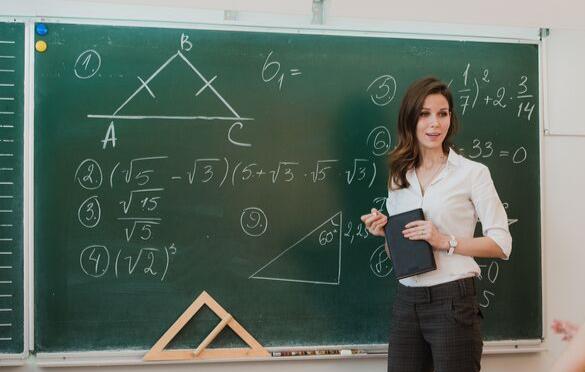 1.
B
A
C
6₁ =
2. (√5 - √3)(5 + √3 · √5 · √3)
3. √15
√5
4. (√2)³
9.
60°
3
(1/7)² + 2 · 3/14
6.
33 = 0
8.
0
5